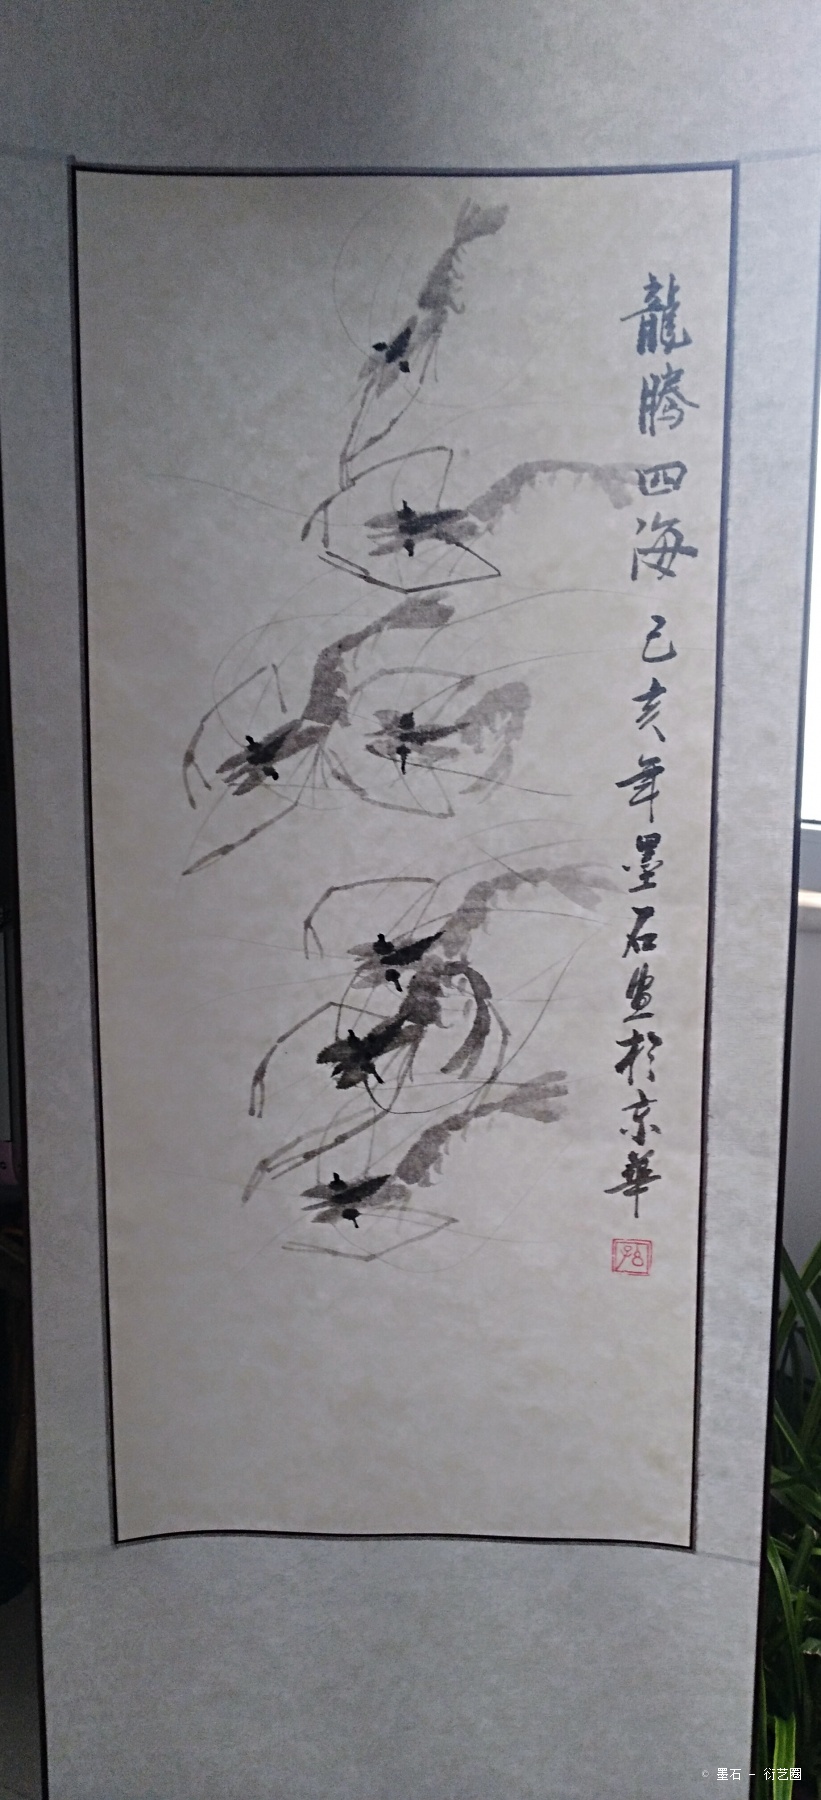 龍騰四海 己亥年墨石画於京華
© 墨石 - 衍艺圈